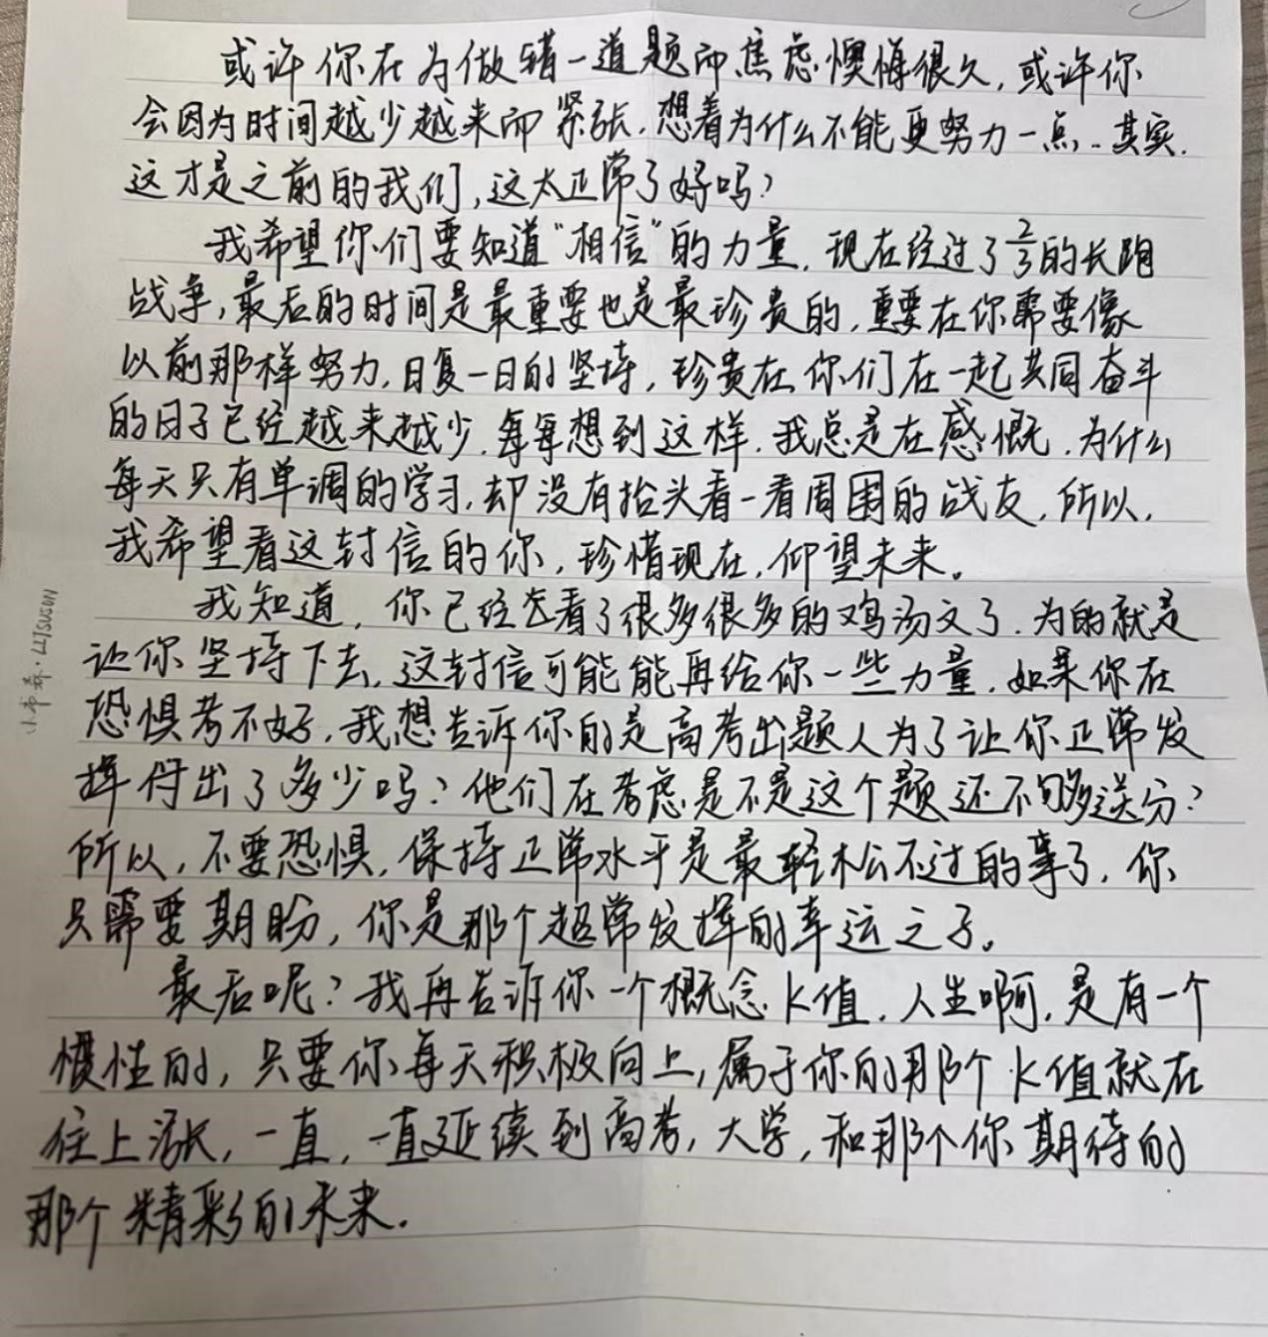 或许你在为做错一道题而焦虑懊悔很久,或许你
会因为时间越少越来而紧张.想着为什么不能更努力一点.其实.
这才是之前的我们,这太正常了好吗?
我希望你们要知道"相信"的力量.现在经过了2/3的长跑
战争,最后的时间是最重要也是最珍贵的,重要在你需要像
以前那样努力,日复一日的坚持,珍贵在你们在一起共同奋斗
的日子已经越来越少.每每想到这样.我总是在感慨.为什么
每天只有单调的学习,却没有抬头看一看周围的战友.所以,
我希望看这封信的你,珍惜现在,仰望未来。
我知道,你已经看了很多很多的鸡汤文了.为的就是
让你坚持下去,这封信可能能再给你一些力量.如果你在
恐惧考不好,我想告诉你的是高考出题人为了让你正常发
挥付出了多少吗?他们在考虑是不是这个题还不够送分?
所以,不要恐惧,保持正常水平是最轻松不过的事了,你
只需要期盼,你是那个超常发挥的幸运之子。
最后呢?我再告诉你一个概念K值.人生啊,是有一个
惯性的,只要你每天积极向上,属于你的那个K值就在
往上涨,一直,一直延续到高考,大学,和那个你期待的
那个精彩的未来.